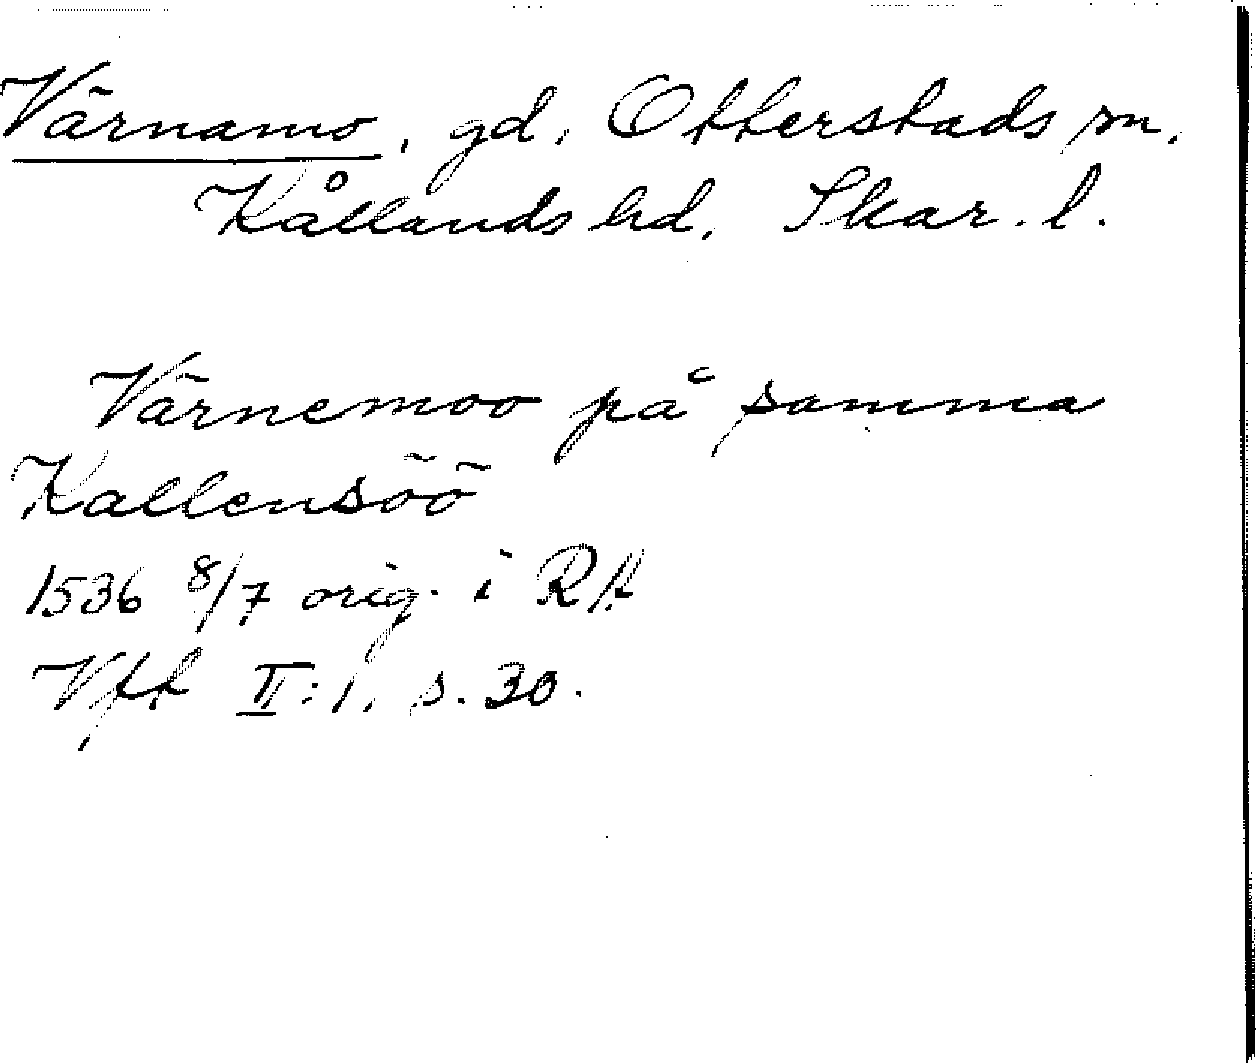 Värnamo, gd, Otterstads sn,
Kållands hd, Skar. l.
Värnemoo på samma
Kallensöö
1536 8/7 orig. i RA
Vff II:1, s. 30.